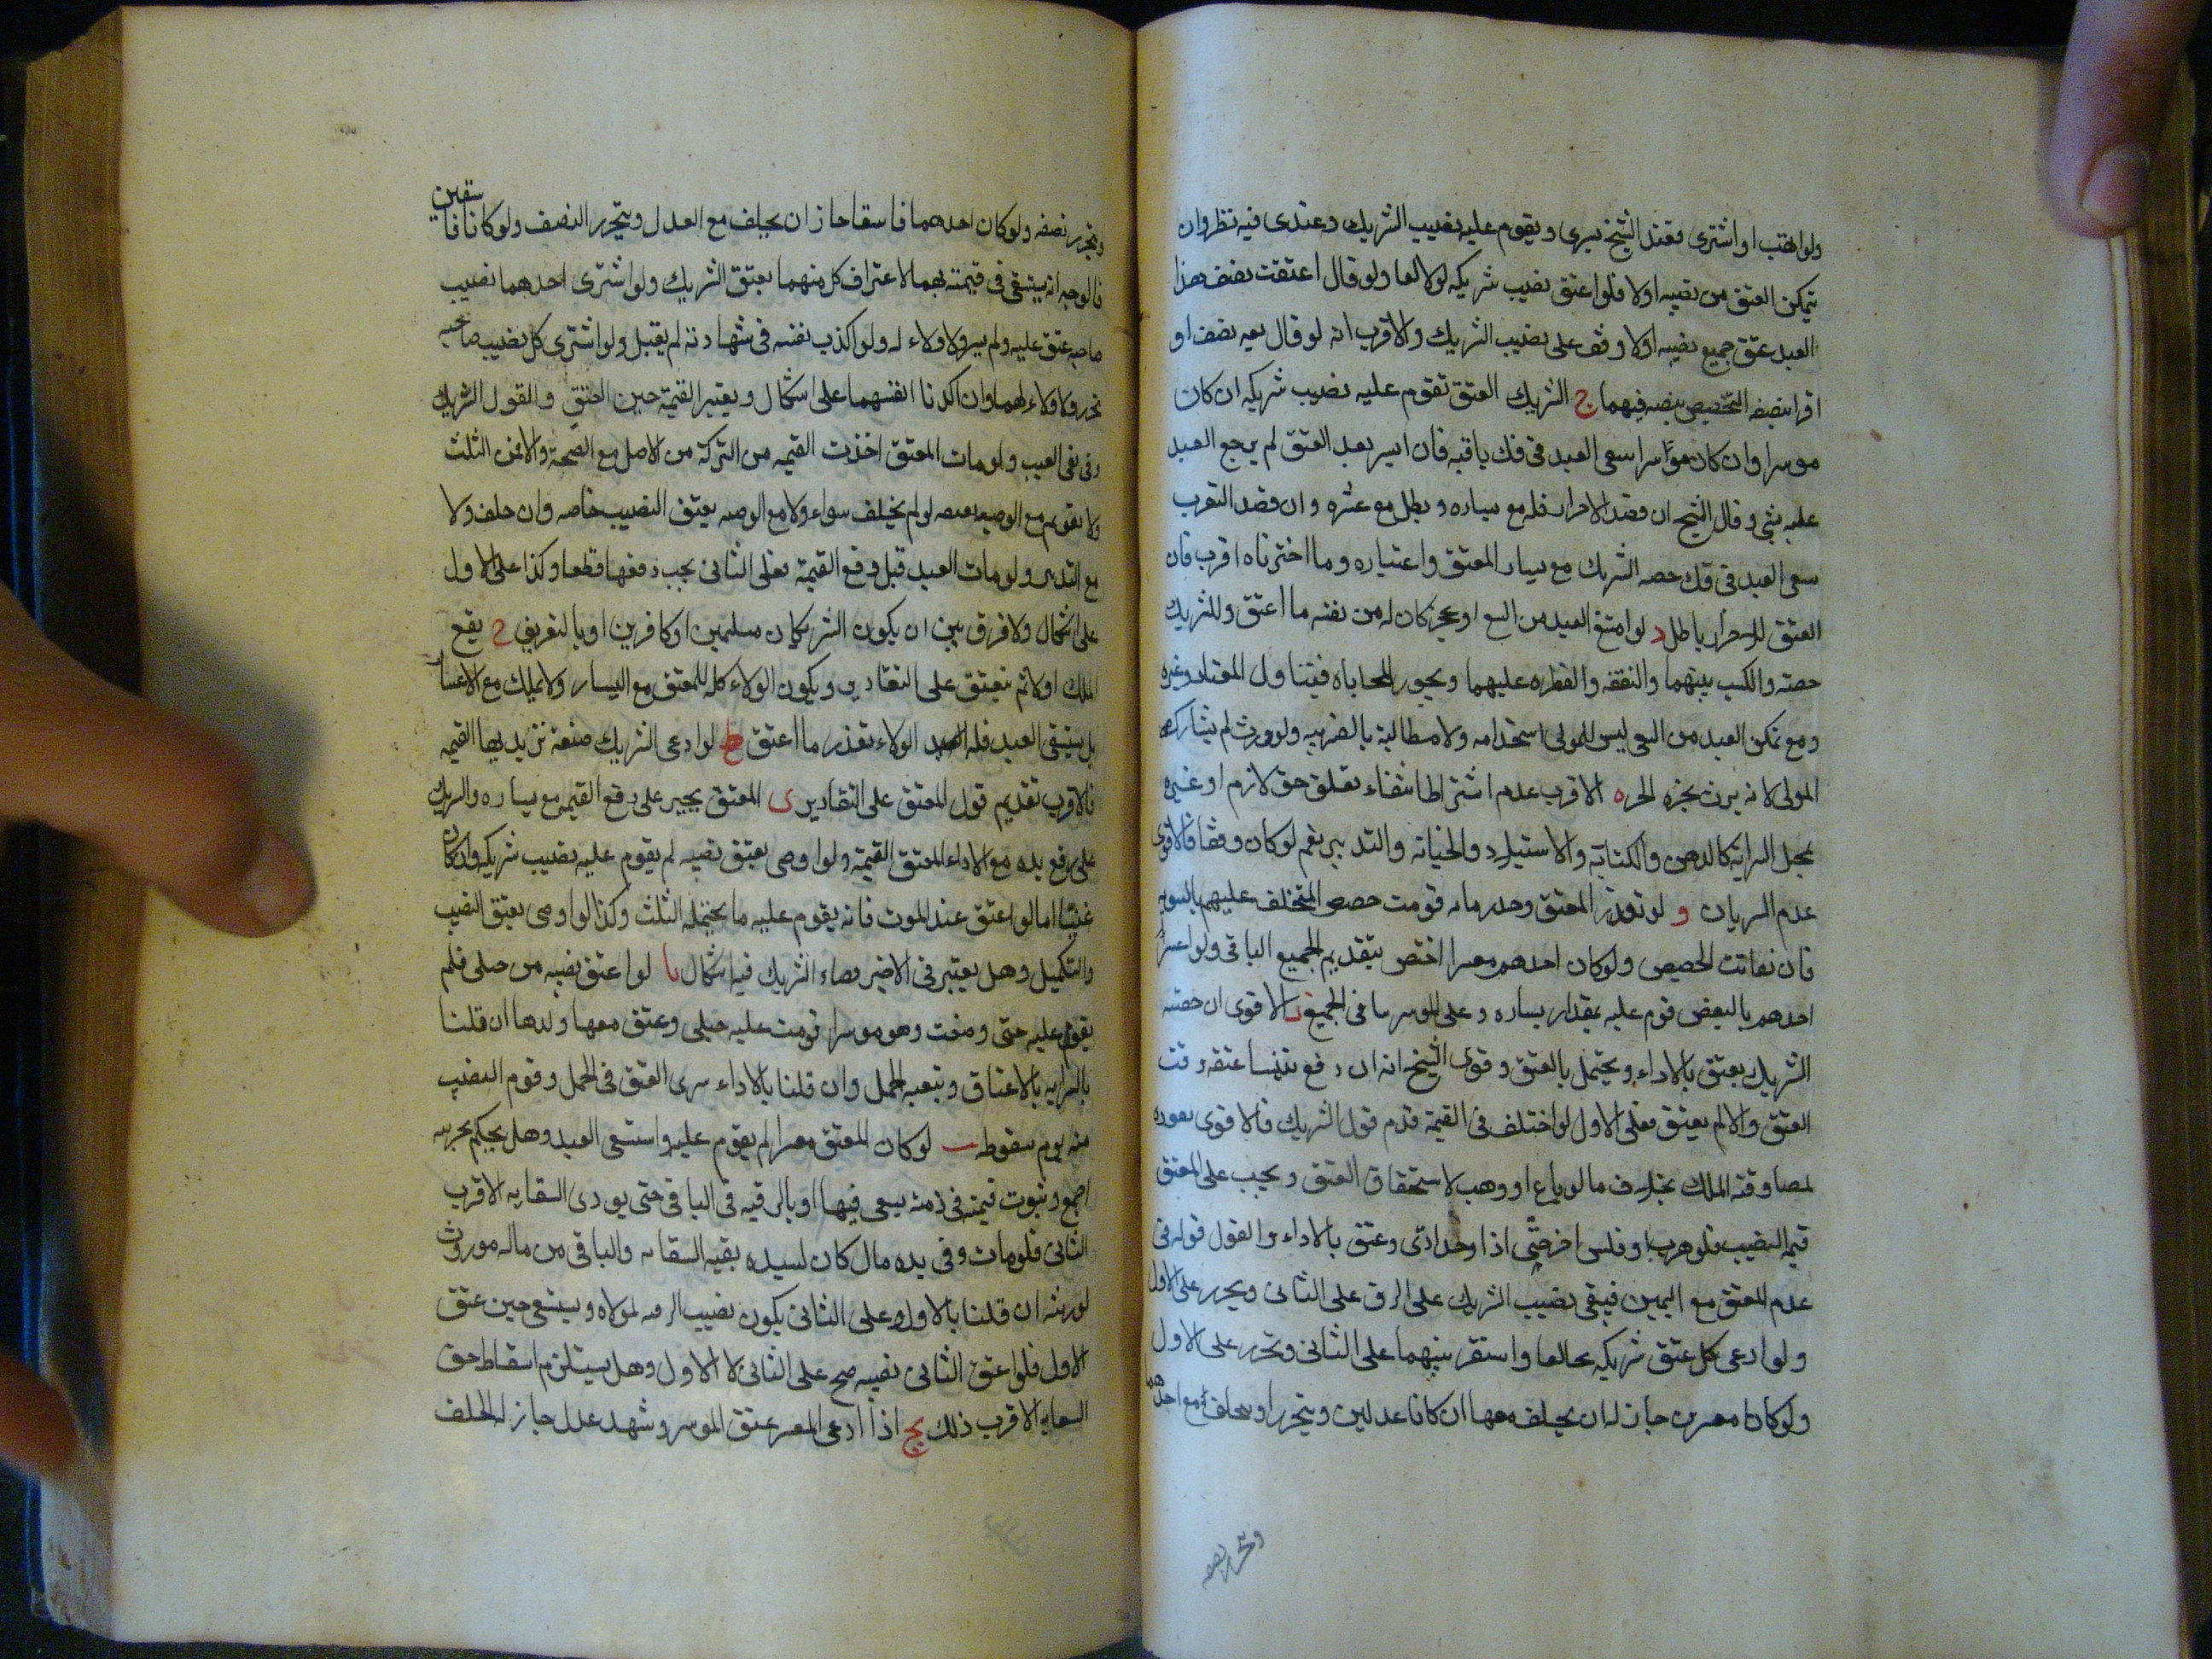 ولو اتهب او اشترى فعند الشيخ يسرى ويقوم عليه نصيب الشريك وعندى فيه نظر وان
يتمكن العتق من نصيبه اولا فلو اعتق نصيب شريكه اولا لغا ولو قال اعتقت نصف هذا
العبد عتق جميع نصيبه اولا وقف على نصيب الشريك والاقرب انه لو قال بعه نصف او
اقر بنصفه التخصيص بنصيبه فيهما ج الشريك العتق تقوم عليه نصيب شريكه ان كان
موسرا وان كان معسرا سعى العبد فى فك باقيه فان ايسر بعد العتق لم يرجع العبد
عليه بشى وقال الشيخ ان قصد الاضرار فكه مع يساره وبطل مع عسره وان قصد التقرب
سعى العبد فى فك حصه الشريك مع يسار المعتق واعتباره وما اخترناه اقرب فان
العتق للاضرار باطل د لو امتنع العبد من السعى او عجز كان له من نفسه ما اعتق وللشريك
حصته والكسب بينهما والنفقه والفطره عليهما ويجوز المحاباه فيتناول المعتاد وغيره
ومع تمكن العبد من السعى ليس للمولى استخدامه ولا مطالبة بالضريبه ولو ورث لم يشاركه
المولى لانه يرث بجزه الحر ه الاقرب عدم اشتراط انتفاء تعلق حق لازم او غيره
بمحل السراية كالرهن والكتابة والاستيلاد والخيانه والتدبير نعم لو كان وقفا فالاقوى
عدم السريان و لو تعذر المعتق وحد زمانه قومت حصص المتخلف عليهم بالسويه
فان تفاتت الحصص ولو كان احدهم معسرا اختص بتقديم الجميع الباقى ولو اعسر
احدهم بالبعض قوم عليه بقدار يساره وعلى الموسر ما فى الجميع ز الاقوى ان حصته
الشريك يعتق بالاداء ويحتمل بالعتق وقوى الشيخ انه ان دفع تبينا عتقه وقت
العتق والا لم يعتق فعلى الاول لو اختلف فى القيمة قدم قول الشريك فالاقوى نفوذه
لمصاوقته الملك بخلاف ما لو باع او وهب لاستحقاق العتق ويجب على المعتق
قيمه النصيب فلو هرب او فلس اخر حتى اذا وجد ادى وعتق بالاداء والقول قوله فى
عدم العتق مع اليمين فيبقى نصيب الشريك على الرق على الثانى ويحرر على الاول
ولو ادعى كل عتق شريكه تحالفا واستقر بينهما على الثانى وتحرر على الاول
ولو كانا معسرين جاز له ان يحلف معها ان كانا عدلين ويتحرر او يحلف مع احدهما
وتحرر نصفه
ويتحرر نصفه ولو كان احدهما فاسقا جاز ان يحلف مع العدل ويتحرر النصف ولو كانا فاسقين
فالوجه انه يستسقى فى قيمته بهما لاعتراف كل منهما بعتق الشريك ولو اشترى احدهما نصيب
صاحبه عتق عليه ولم يسر ولا ولاء له ولو اكذب نفسه فى شهادته لم يقبل ولو اشترى كل نصيب صاحبه
تحرر ولا ولاء لهما وان اكذبا انفسهما على اشكال ويعتبر القيمة حين العتق والقول الشريك
فى نفى العيب ولو مات المعتق اخذت القيمه من التركة من الاصل مع الصحة والا من الثلث
ولا تقويم مع الوصيه بعتقه لو لم يخلف سواء ولا مع الوصيه بعتق النصيب خاصه وان خلف ولا
مع التدبير ولو مات العبد قبل دفع القيمة فعلى الثانى يجب دفعها قطعا وكذا على الاول
على اشكال ولا فرق بين ان يكون الشريكان مسلمين او كافرين او بالتفريق ح يقع
الملك اولا ثم ينعتق على التقادير ويكون الولاء كله للمعتق مع اليسار ولا يملك مع الاعسار
بل يستسقى العبد فله الولاء بقدر ما اعتق ط لو ادعى الشريك صنعة تزيد بها القيمه
فالاقرب تقديم قول المعتق على التقادير ى المعتق يجبر على دفع القيمه مع يساره والشريك
على رفع يده مع الاداء المعتق القيمة ولو اوصى بعتق نصيبه لم يقوم عليه نصيب شريكه وان كان
غنيا اما لو اعتق عند الموت فانه يقوم عليه ما يحتمله الثلث وكذا لو اوصى بعتق النصيب
والتكميل وهل يعتبر فى الاخير رضاء الشريك فيه اشكال يا لو اعتق نصيبه من حبلى فلم
يقوم عليه حتى وضعت وهو موسر قومت عليه حبلى وعتق معها ولدها ان قلنا
بالسرايه بالاعتاق وتبعيه الحمل وان قلنا بالاداء سرى العتق فى الحمل وقوم النصيب
منه يوم سقوطه يب لو كان المعتق معسرا لم يقوم عليه واستسعى العبد وهل يحكم بحريته
اجمع وثبوت قيمته فى ذمته يسعى فيها او بالرقيه فى الباقى حتى يودى السقايه الاقرب
الثانى فلو مات وفى يده مال كان لسيده بقيه السقايه والباقى من ماله موروث
لورثته ان قلنا بالاول وعلى الثانى يكون نصيب الرقيه لمولاه ويستسعى حين عتق
الاول فلو اعتق الثانى نصيبه صح على الثانى لا الاول وهل يستلزم اسقاط حق
السعايه الاقرب ذلك يج اذا ادعى المعسر عتق الموسر وشهد عدل جاز له الحلف